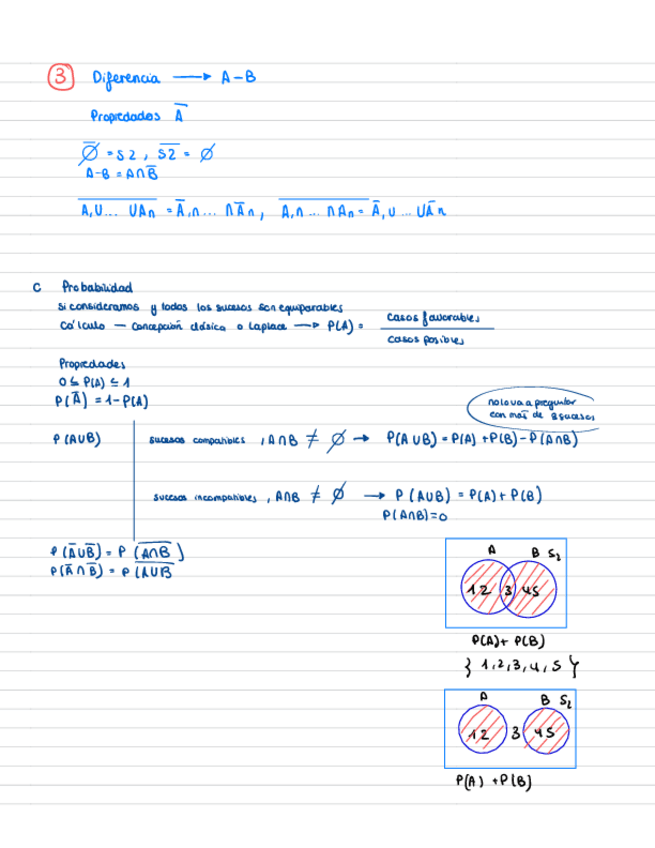 3 Diferencia → A-B
Propiedades A̅
∅̅ = S2, S̅2̅ = ∅
A-B = A∩B̅
A̅,̅U̅.̅.̅.̅ ̅U̅A̅n̅ = A̅,∩... ∩A̅n, A̅,̅∩̅.̅.̅.̅ ̅∩̅A̅n̅ = A̅,U... UA̅n
C Probabilidad
Si consideramos y todos los sucesos son equiparables
Cálculo — Concepción clásica o Laplace → P(A) = casos favorables / casos posibles
Propiedades
0 ≤ P(A) ≤ 1
P(A̅) = 1-P(A)
no lo va a preguntar
con más de 2 sucesos
P(AUB)
sucesos compatibles, A∩B ≠ ∅ → P(AUB) = P(A)+P(B)-P(A∩B)
sucesos incompatibles, A∩B ≠ ∅ → P(AUB) = P(A)+P(B)
P(A∩B)=0
P(A̅UB̅) = P(A̅∩̅B̅)
P(A̅∩B̅) = P(A̅U̅B̅
A B S2
12 3 45
P(A)+ P(B)
} 1,2,3,4,5 }
A B S2
12 3 45
P(A) +P(B)